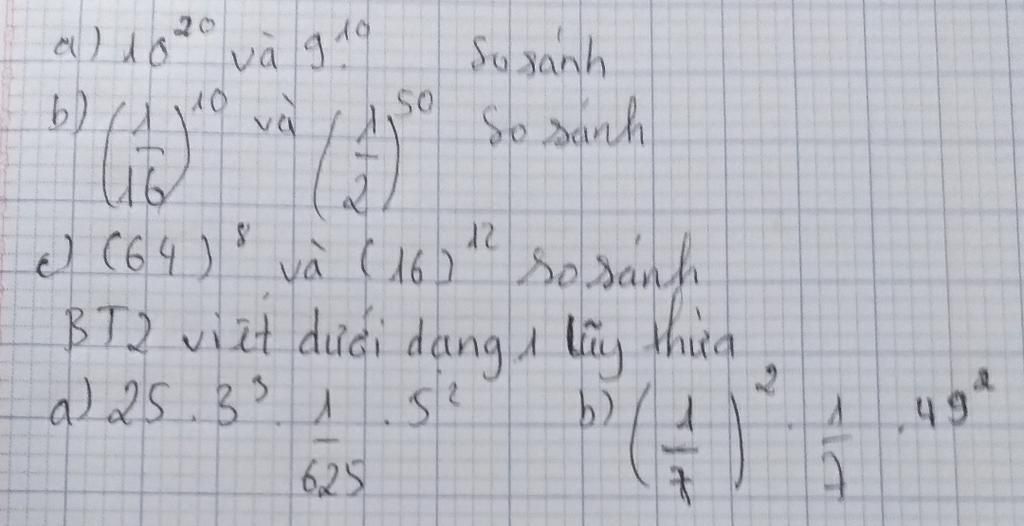 a) 10²⁰ và 9¹⁰ So sánh
b) (1/16)¹⁰ và (1/2)⁵⁰ So sánh
c) (64)⁸ và (16)¹² so sánh
BT2 viết dưới dạng 1 lũy thừa
a) 25 . 3³ . 1/625 . 5² b) (1/7)² . 1/7 . 49²